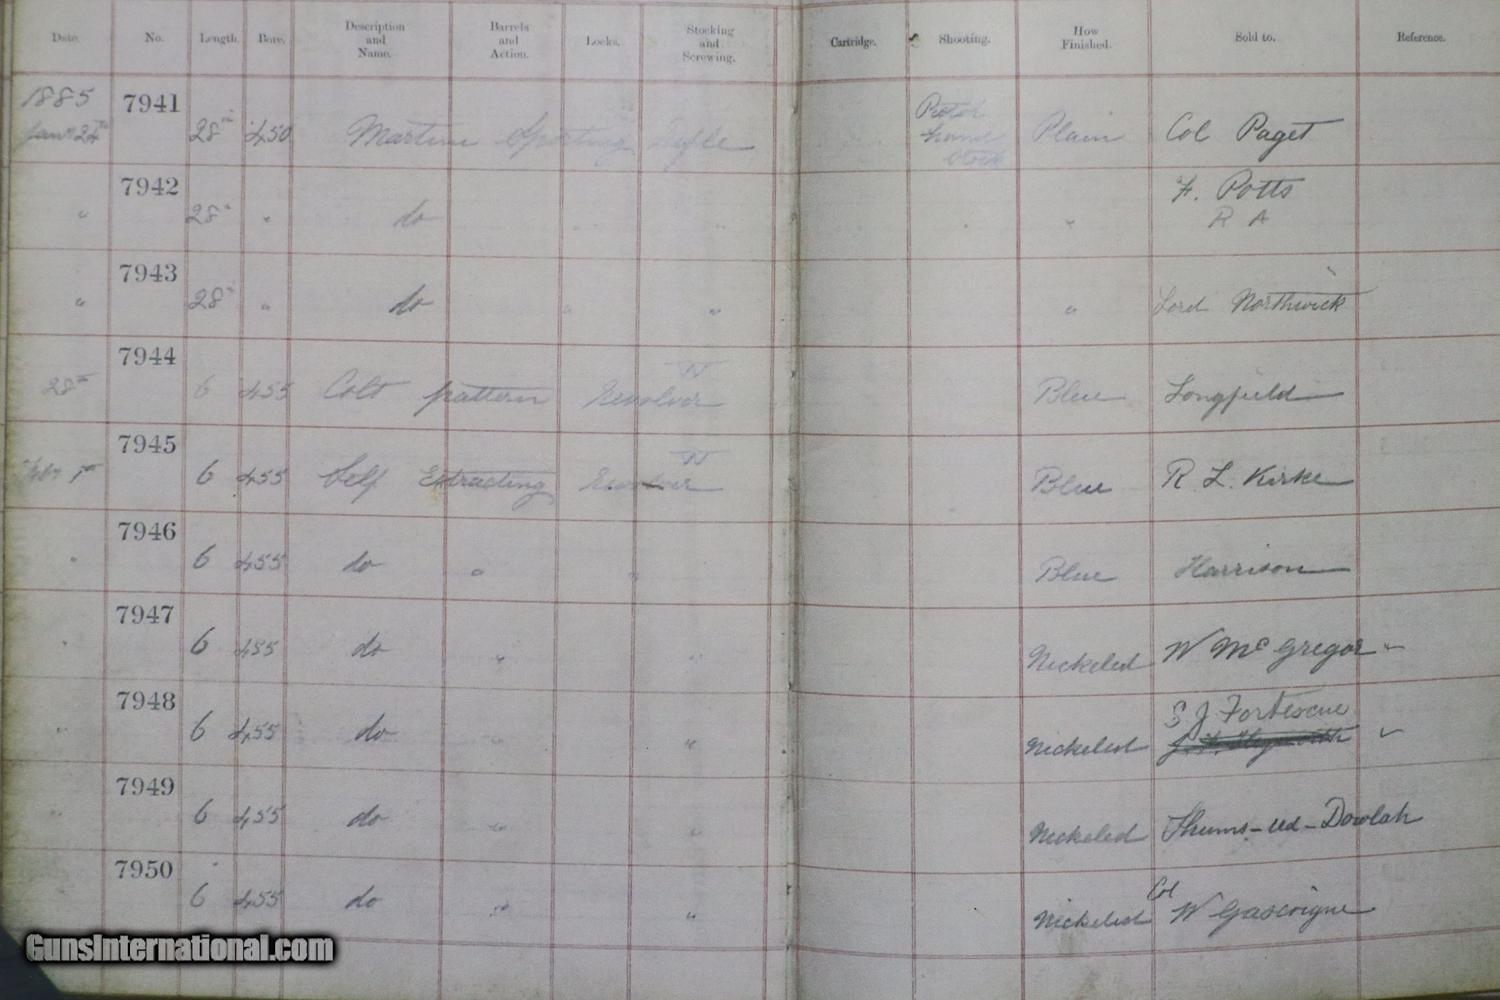 Date. No. Length. Bore. Description and Name. Barrels and Action. Locks. Stocking and Screwing. Cartridge. Shooting. How Finished. Sold to. Reference.
1885
Jany 24th 7941 28in 450 Martini Sporting Rifle Pistol hand Stock Plain Col Paget
" 7942 28" " do " " F. Potts R A
" 7943 28" " do " " " Lord Northwick
28th 7944 6 455 Colt pattern Revolver W Blue Longfield
Feby 1st 7945 6 455 Self Extracting Revolver W Blue R. L. Kirke
" 7946 6 455 do " " Blue Harrison
" 7947 6 455 do " " Nickeled W McGregor
" 7948 6 455 do " " Nickeled S J Fortescue
" 7949 6 455 do " " Nickeled Shums-ud-Dowlah
7950 6 455 do " " Nickeled Col W Gascoigne
GunsInternational.com